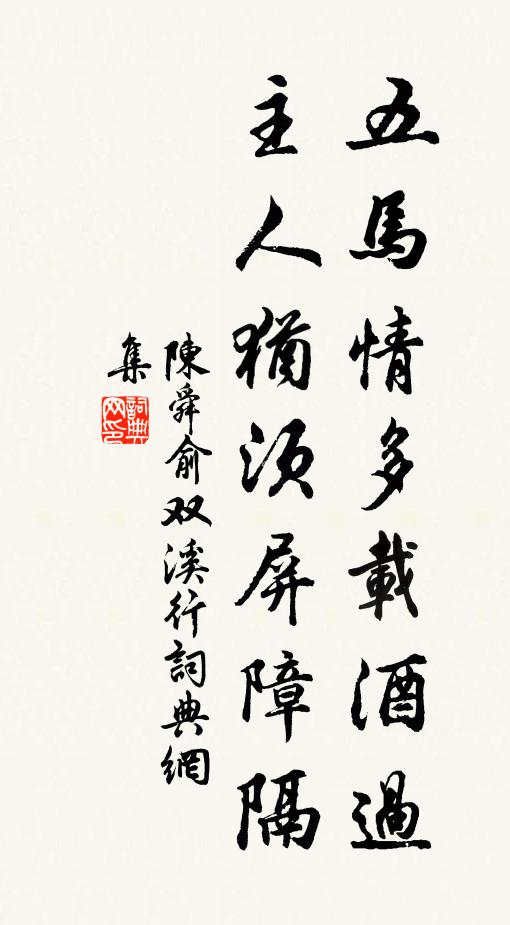 五馬情多載酒過
主人猶須屏障隔
陳舜俞双溪行詞典網
集
詞典网印